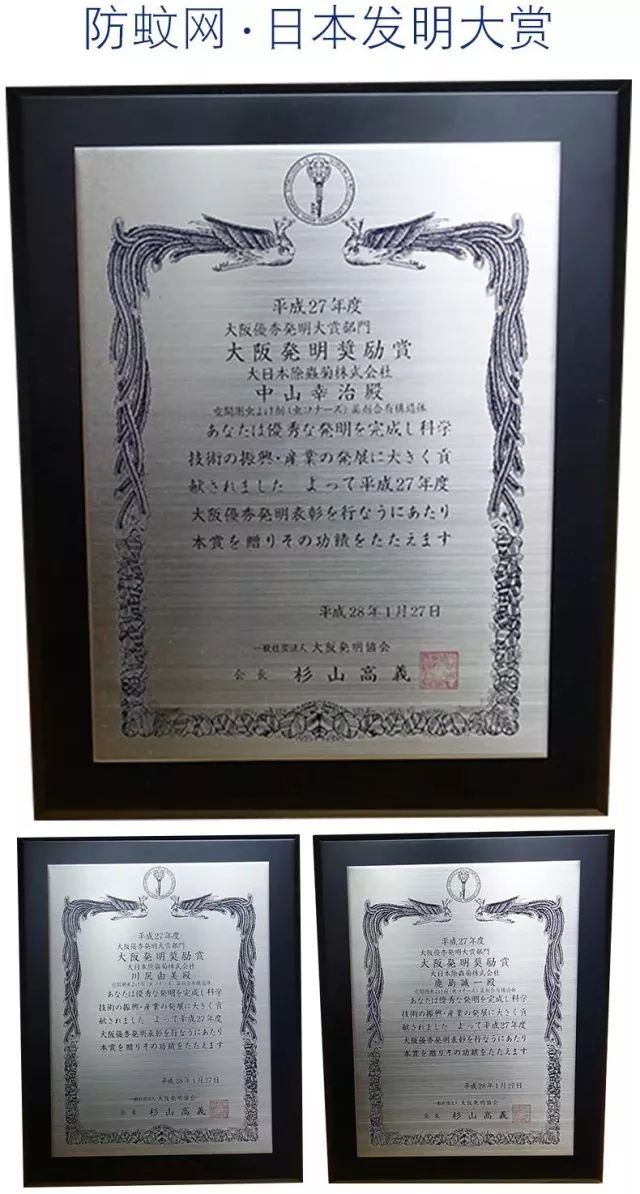 防蚊网·日本发明大赏
平成27年度
大阪優秀発明大賞部門
大阪発明奨励賞
大日本除蟲菊株式会社
中山幸治殿
空間用虫よけ剤(虫コナーズ)薬剤含有構造体
あなたは優秀な発明を完成し科学
技術の振興・産業の発展に大きく貢
献されました よって平成27年度
大阪優秀発明表彰を行なうにあたり
本賞を贈りその功績をたたえます
平成28年1月27日
一般社団法人大阪発明協会
会長 杉山高義
平成27年度
大阪優秀発明大賞部門
大阪発明奨励賞
大日本除蟲菊株式会社
川尻由美殿
空間用虫よけ剤(虫コナーズ)薬剤含有構造体
あなたは優秀な発明を完成し科学
技術の振興・産業の発展に大きく貢
献されました よって平成27年度
大阪優秀発明表彰を行なうにあたり
本賞を贈りその功績をたたえます
平成28年1月27日
一般社団法人大阪発明協会
会長 杉山高義
平成27年度
大阪優秀発明大賞部門
大阪発明奨励賞
大日本除蟲菊株式会社
鹿島誠一殿
空間用虫よけ剤(虫コナーズ)薬剤含有構造体
あなたは優秀な発明を完成し科学
技術の振興・産業の発展に大きく貢
献されました よって平成27年度
大阪優秀発明表彰を行なうにあたり
本賞を贈りその功績をたたえます
平成28年1月27日
一般社団法人大阪発明協会
会長 杉山高義